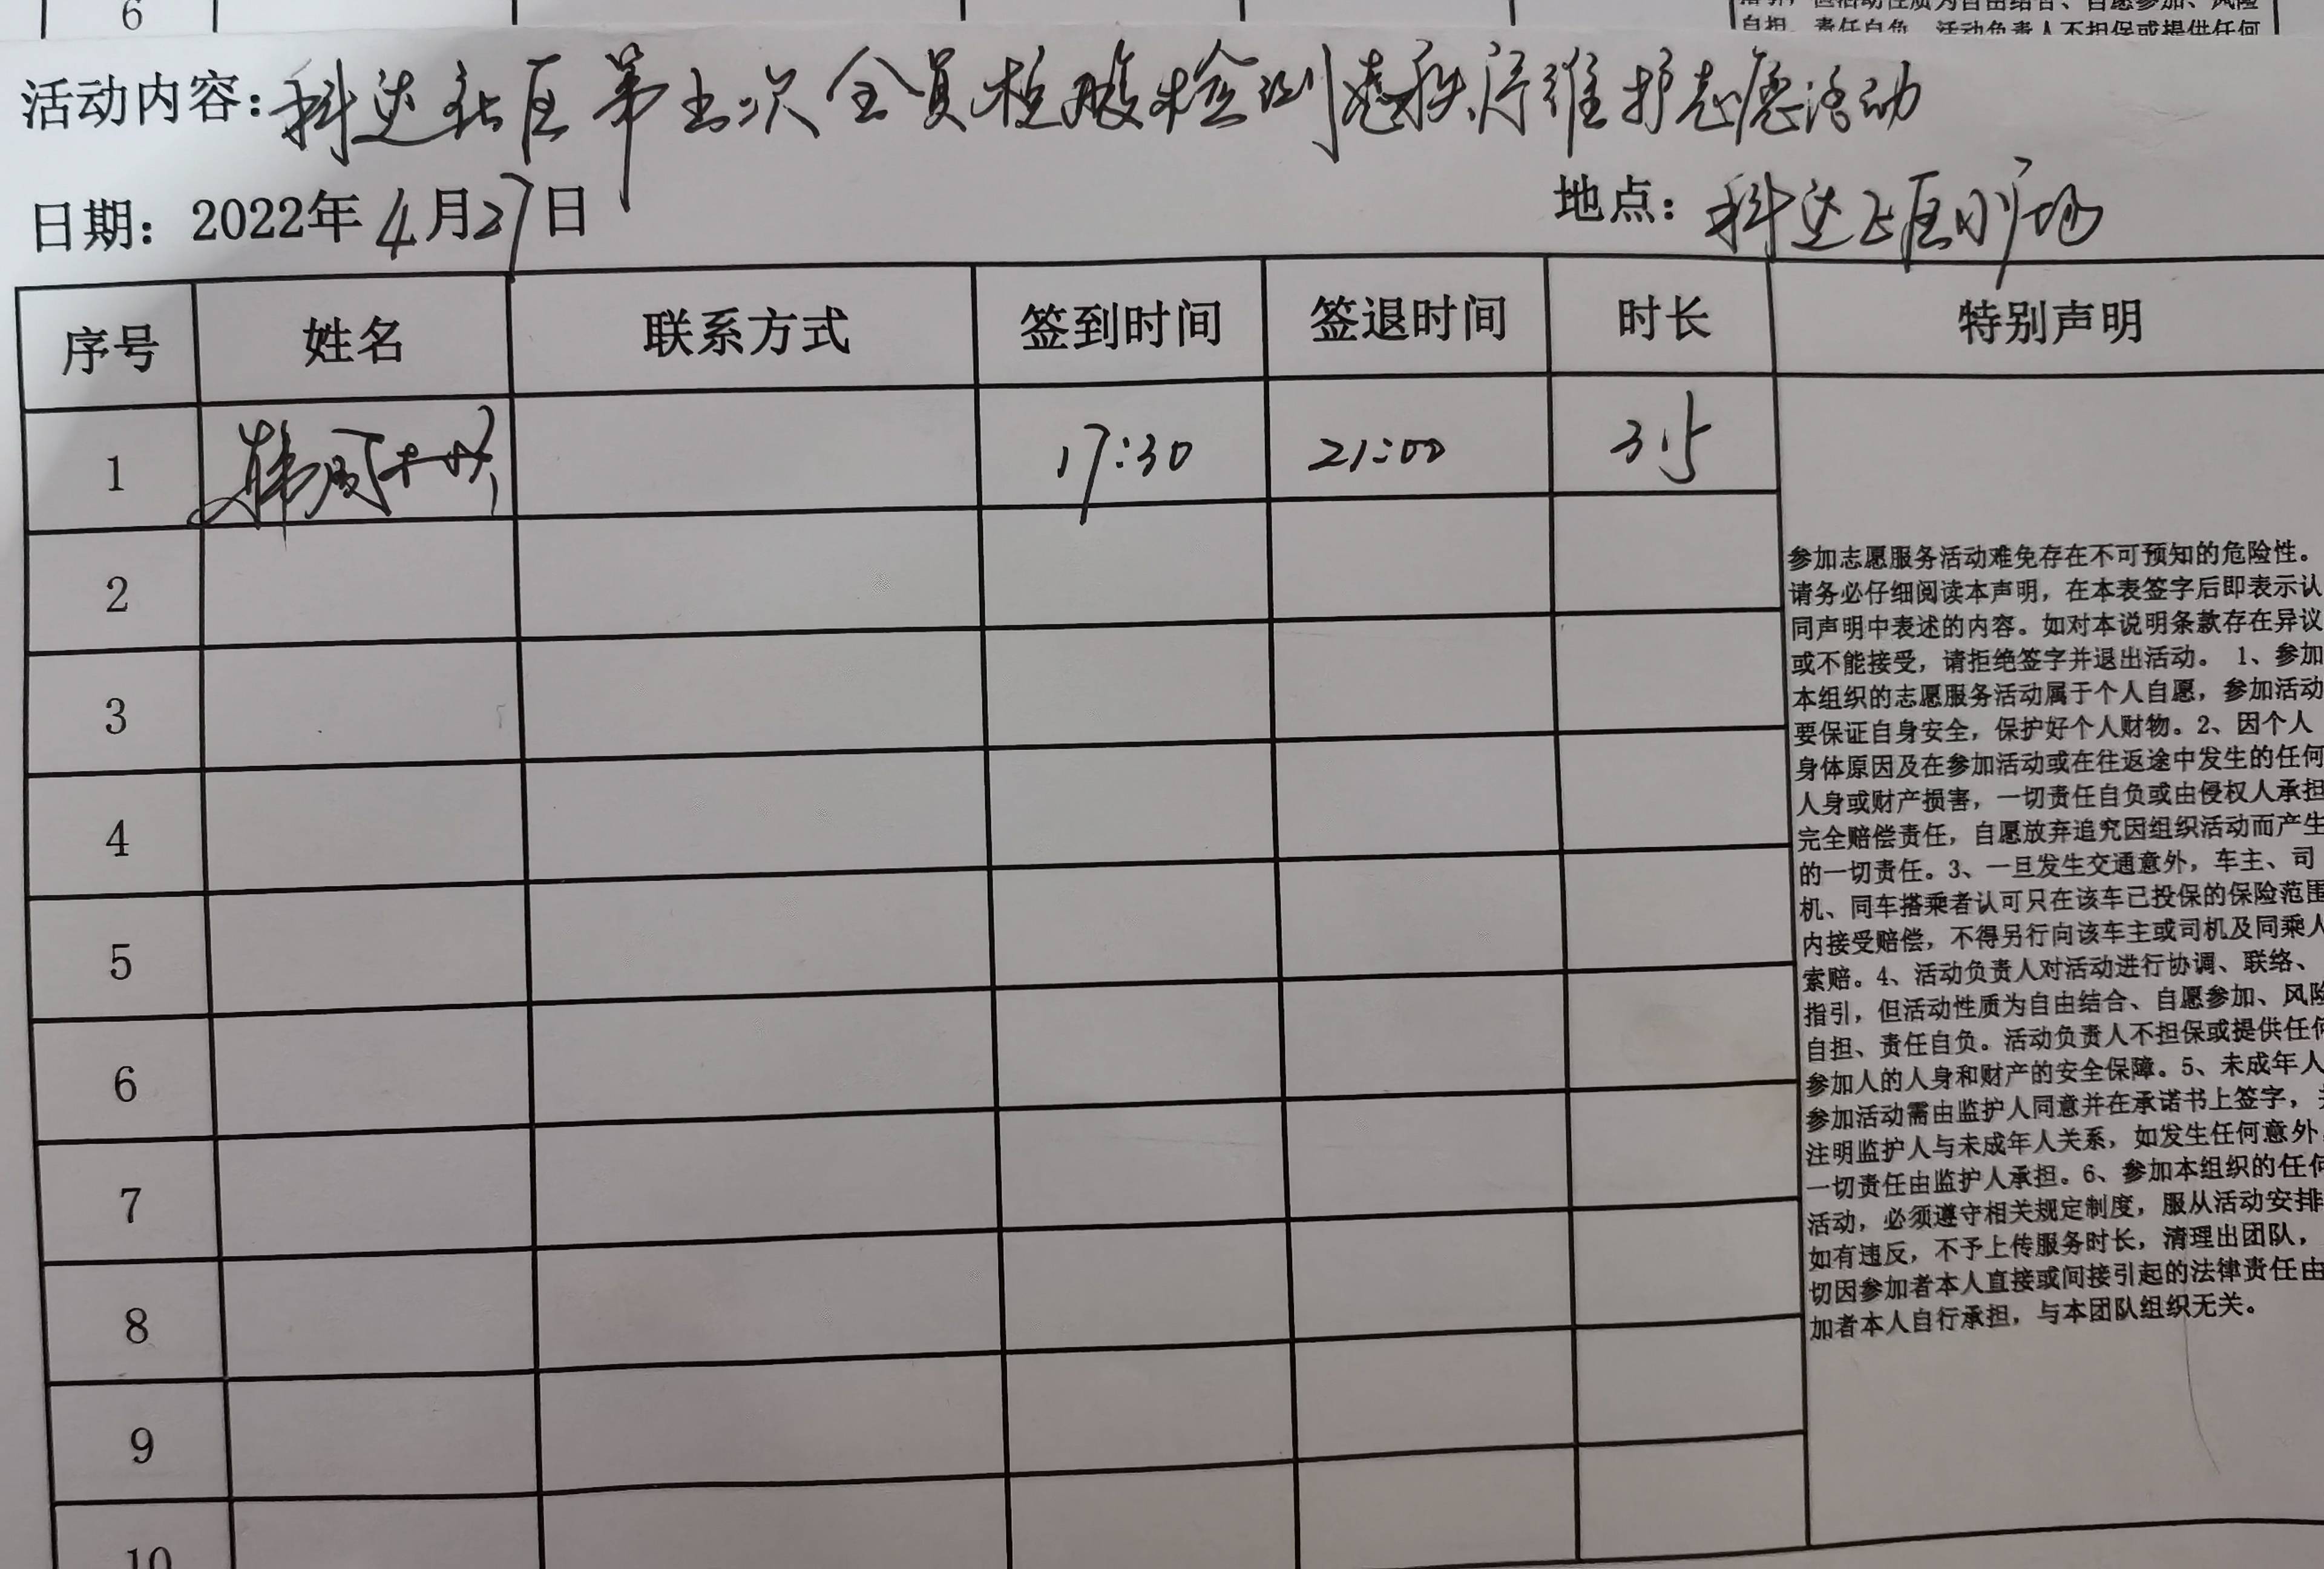 6
自担、责任自负。活动负责人不担保或提供任何
活动内容：科达社区第五次全员核酸检测秩序维护志愿活动
日期：2022年4月27日
地点：科达社区广场
序号 姓名 联系方式 签到时间 签退时间 时长 特别声明
1 17:30 21:00 3.5
2
3
4
5
6
7
8
9
10
参加志愿服务活动难免存在不可预知的危险性。
请务必仔细阅读本声明，在本表签字后即表示认
同声明中表述的内容。如对本说明条款存在异议
或不能接受，请拒绝签字并退出活动。 1、参加
本组织的志愿服务活动属于个人自愿，参加活动
要保证自身安全，保护好个人财物。2、因个人
身体原因及在参加活动或在往返途中发生的任何
人身或财产损害，一切责任自负或由侵权人承担
完全赔偿责任，自愿放弃追究因组织活动而产生
的一切责任。3、一旦发生交通意外，车主、司
机、同车搭乘者认可只在该车已投保的保险范围
内接受赔偿，不得另行向该车主或司机及同乘人
索赔。4、活动负责人对活动进行协调、联络、
指引，但活动性质为自由结合、自愿参加、风险
自担、责任自负。活动负责人不担保或提供任何
参加人的人身和财产的安全保障。5、未成年人
参加活动需由监护人同意并在承诺书上签字，
注明监护人与未成年人关系，如发生任何意外，
一切责任由监护人承担。6、参加本组织的任何
活动，必须遵守相关规定制度，服从活动安排
如有违反，不予上传服务时长，清理出团队，
切因参加者本人直接或间接引起的法律责任由
加者本人自行承担，与本团队组织无关。